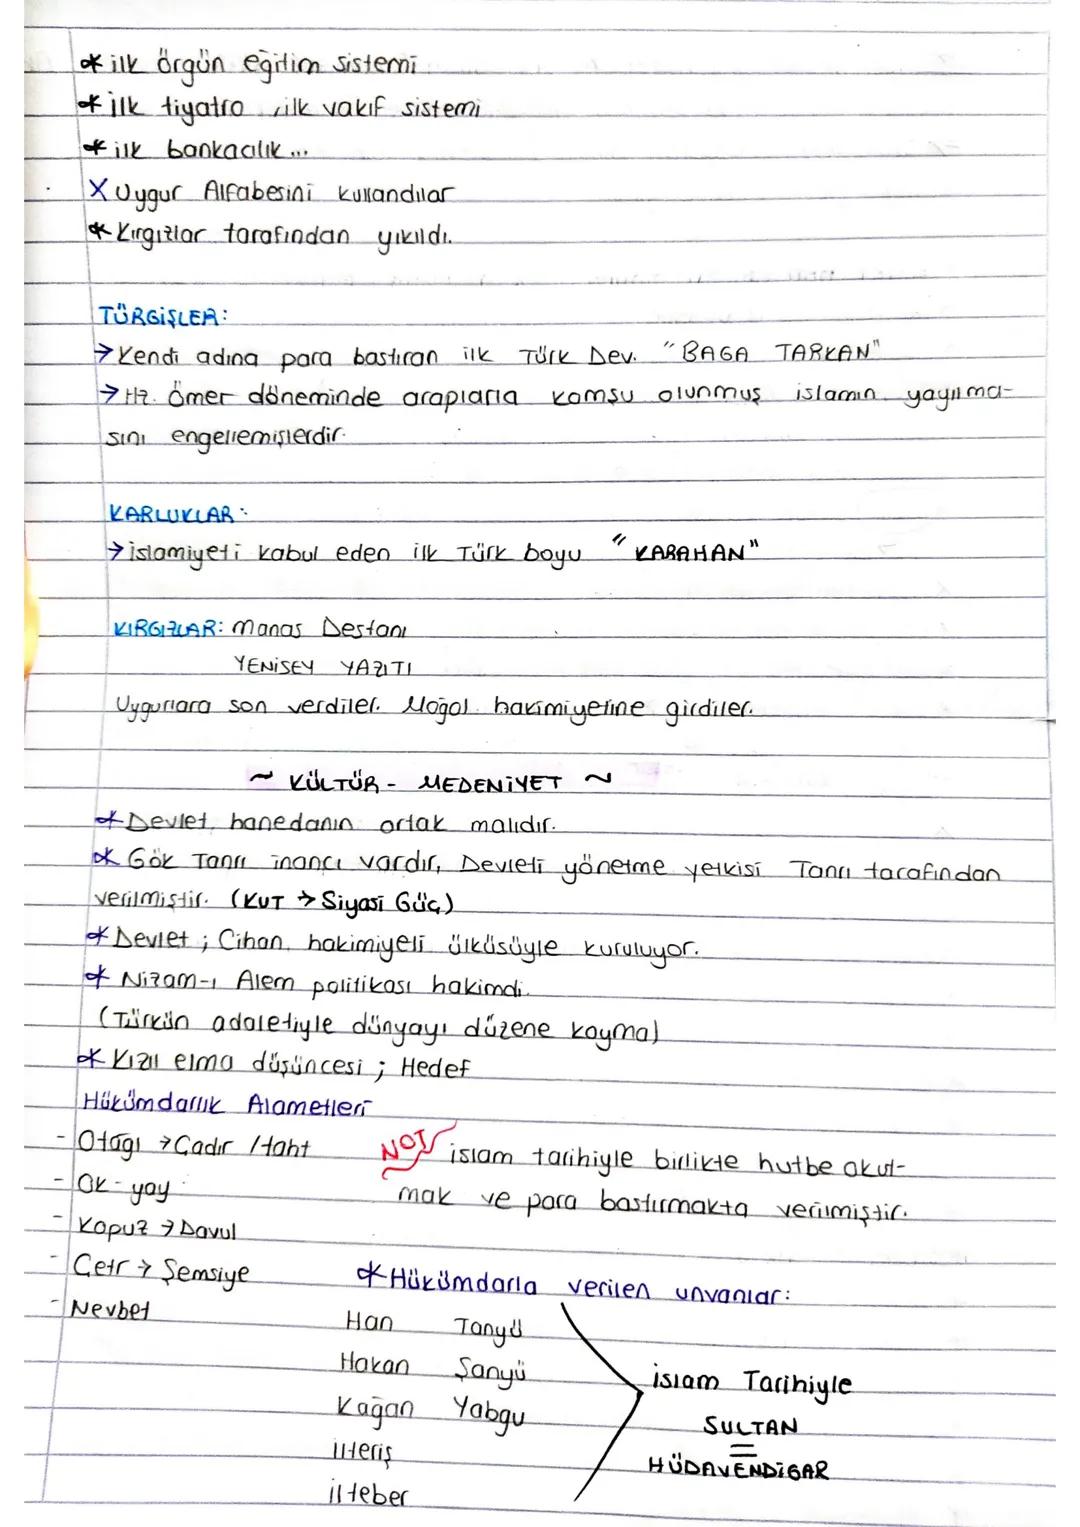 * ilk örgün eğitim sistemi
* ilk tiyatro, ilk vakıf sistemi
* ilk bankacılık...
X Uygur Alfabesini kullandılar
* Kırgızlar tarafından yıkıldı.
TÜRGİŞLER:
→ Kendi adına para bastıran ilk Türk Dev. "BAGA TARKAN"
→ Hz. Ömer döneminde araplarla komşu olunmuş islamın yayılma-
sını engellemişlerdir.
KARLUKLAR:
→ islamiyeti kabul eden ilk Türk boyu "KARAHAN"
KIRGIZLAR: Manas Destanı
YENİSEY YAZITI
Uygurlara son verdiler. Moğol hakimiyetine girdiler.
~ KÜLTÜR - MEDENİYET ~
* Devlet, hanedanın ortak malıdır.
* Gök Tanrı inancı vardır, Devleti yönetme yetkisi Tanrı tarafından
verilmiştir. (KUT → Siyasi Güç)
* Devlet ; Cihan hakimiyeti ülküsüyle kuruluyor.
* Nizam-ı Alem politikası hakimdi.
(Türkün adaletiyle dünyayı düzene koyma)
* Kızıl elma düşüncesi ; Hedef
Hükümdarlık Alametleri
- Otağı → Çadır / Taht
NOT islam tarihiyle birlikte hutbe okut-
- Ok - yay
mak ve para bastırmakta verilmiştir.
- Kopuz → Davul
- Çetr → Şemsiye
* Hükümdarla verilen unvanlar:
- Nevbet
Han Tanyü
Hakan Şanyü
islam Tarihiyle
Kağan Yabgu
SULTAN
=
ilteriş
HÜDAVENDİGAR
ilteber